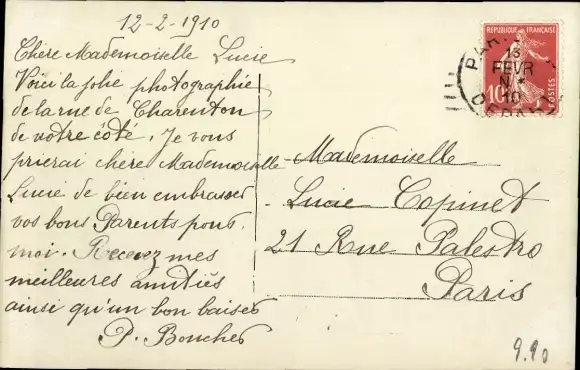 12-2-1910
Chère Mademoiselle Lucie
Voici la jolie photographie
de la rue de Charenton
de votre côté. Je vous
prierai chère Mademoiselle
Lucie de bien embrasser
vos bons Parents pour
moi. Recevez mes
meilleures amitiés
ainsi qu'un bon baiser
P. Boucher
REPUBLIQUE FRANÇAISE
10
POSTES
PAR
13
FEVR
10
DEPART
Mademoiselle
Lucie Copinet
21 Rue Palestro
Paris
9.90